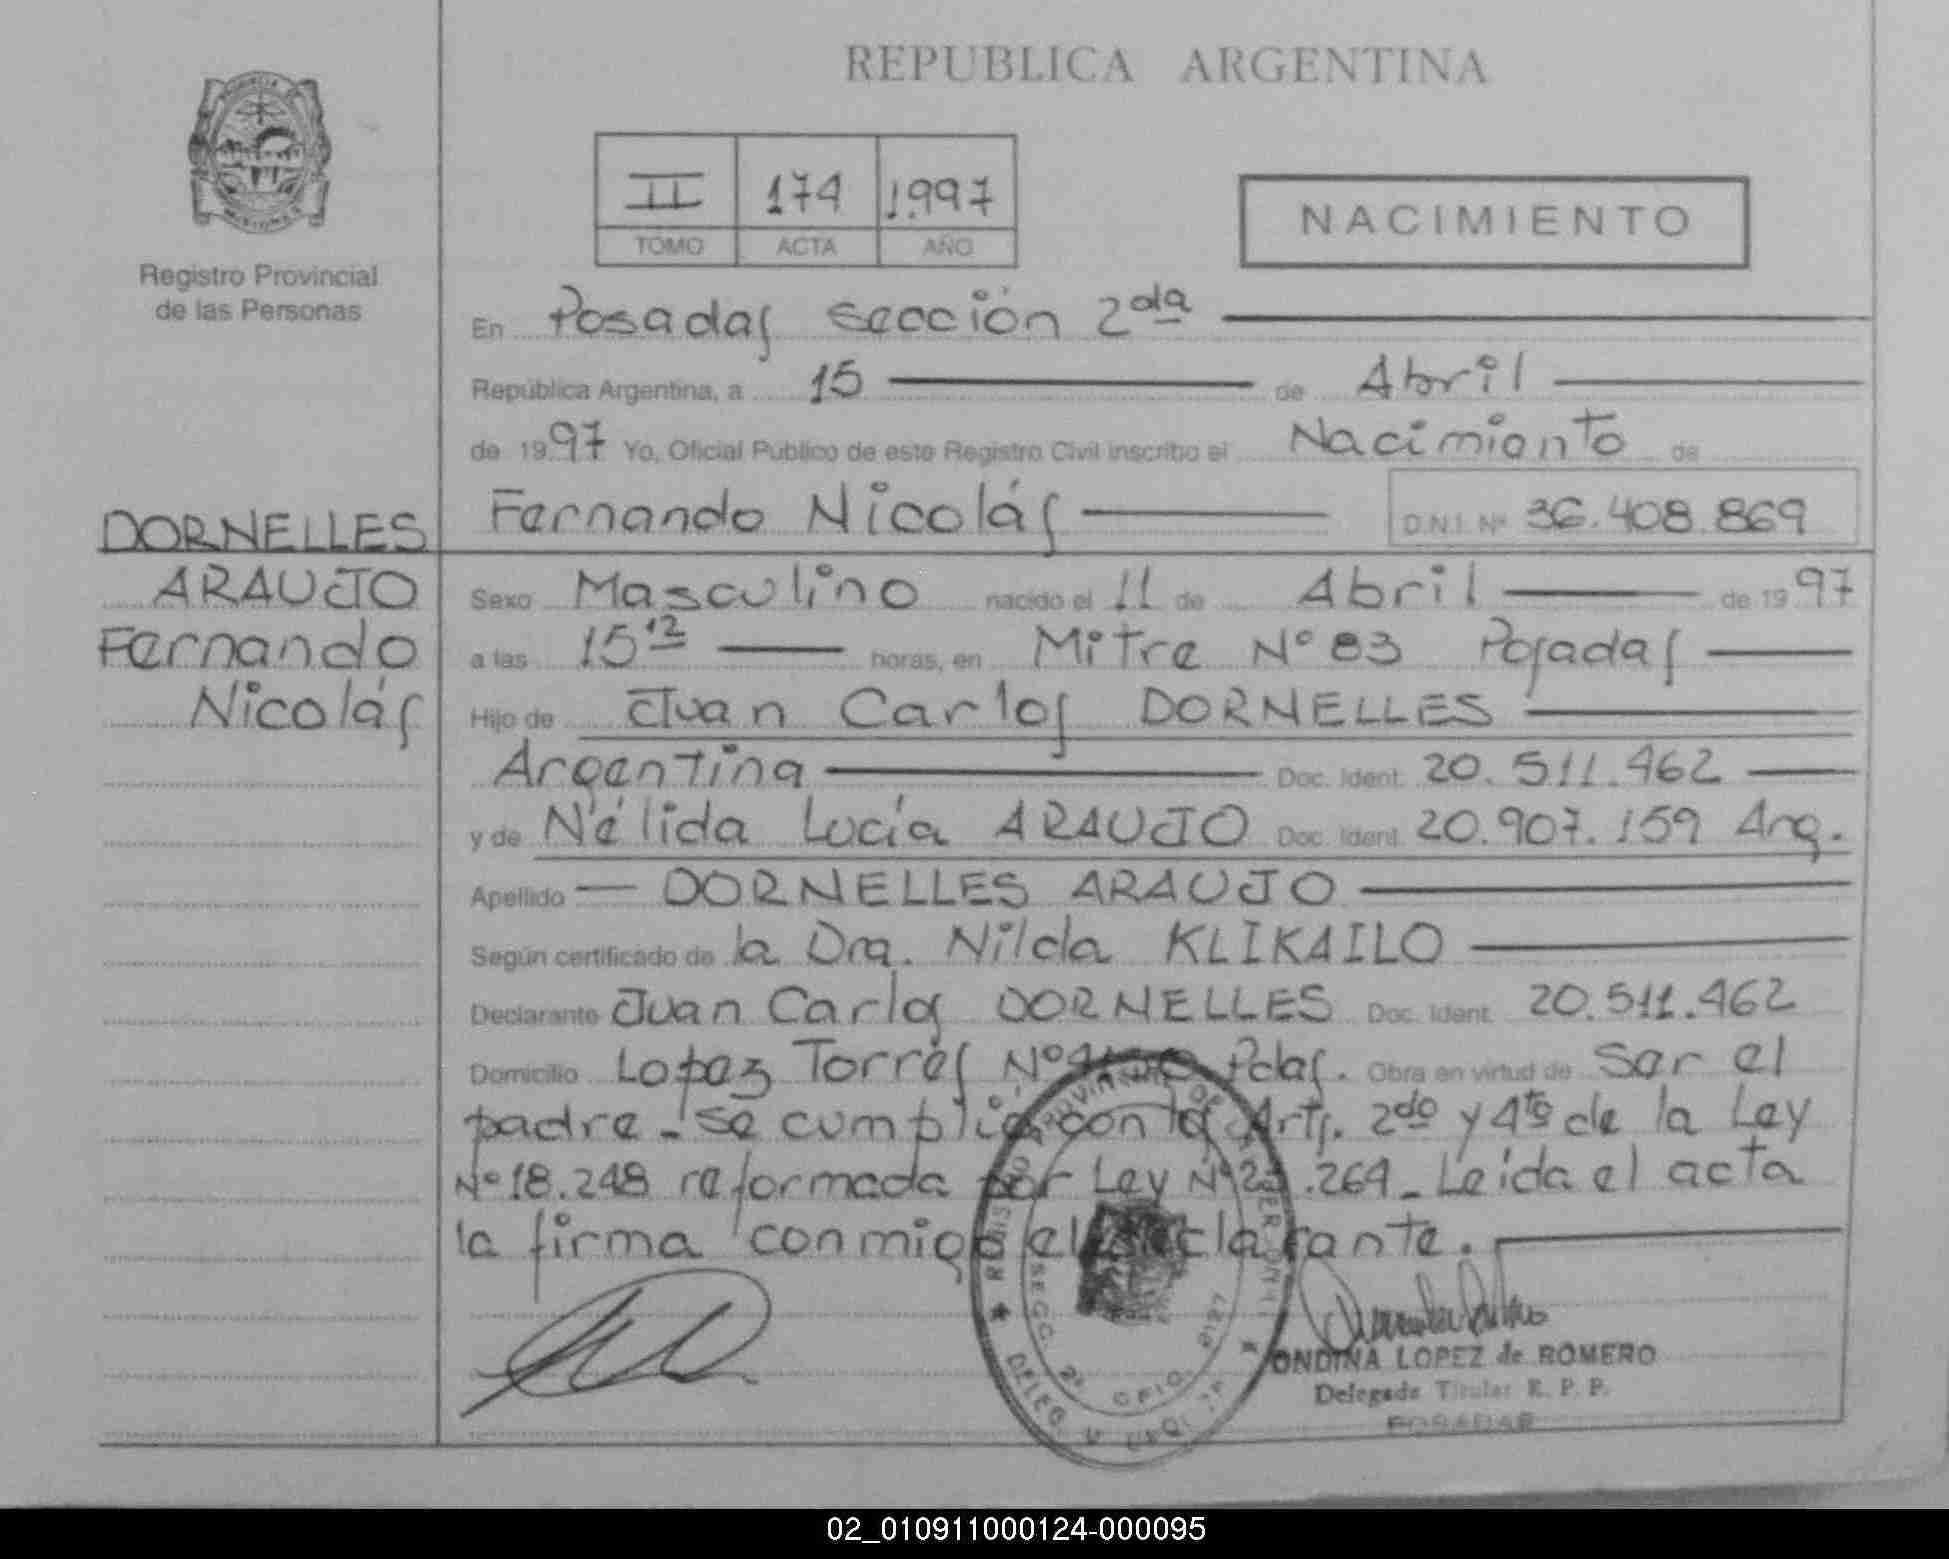 REPUBLICA ARGENTINA
II 174 1.997
TOMO ACTA AÑO
NACIMIENTO
Registro Provincial
de las Personas
En Posadas sección 2da
República Argentina, a 15 de Abril
de 1997 Yo, Oficial Público de este Registro Civil inscribo el Nacimiento de
Fernando Nicolás D.N.I. Nº 36.408.869
DORNELLES
ARAUJO
Fernando
Nicolás
Sexo Masculino nacido el 11 de Abril de 1997
a las 15 12 horas, en Mitre Nº 83 Posadas
Hijo de Juan Carlos DORNELLES
Argentina Doc. Ident. 20.511.462
y de Nélida Lucía ARAUJO Doc. Ident. 20.907.159 Arg.
Apellido DORNELLES ARAUJO
Según certificado de la Dra. Nilda KLIKAILO
Declarante Juan Carlos DORNELLES Doc. Ident. 20.511.462
Domicilio Lopez Torres Nº Pdas. Obra en virtud de ser el
padre - se cumplió con los Arts. 2do y 4to de la Ley
Nº 18.248 reformada por Ley Nº 23.264 - Leída el acta
la firma conmigo el declarante.
ONDINA LOPEZ de ROMERO
Delegada Titular R. P. P.
POSADAS
02_010911000124-000095